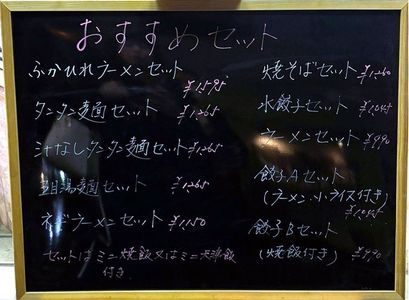 おすすめセット
ふかひれラーメンセット
¥1,595
タンタン麺セット ¥1,265
汁なしタンタン麺セット ¥1,265
五目湯麺セット ¥1,265
ネギラーメンセット ¥1,150
セットはミニ焼飯又はミニ天津飯
付き
焼そばセット ¥1,260
水餃子セット ¥1,045
ラーメンセット ¥990
餃子Aセット
(ラーメン・小ライス付き)
¥1,045
餃子Bセット
(焼飯付き) ¥990